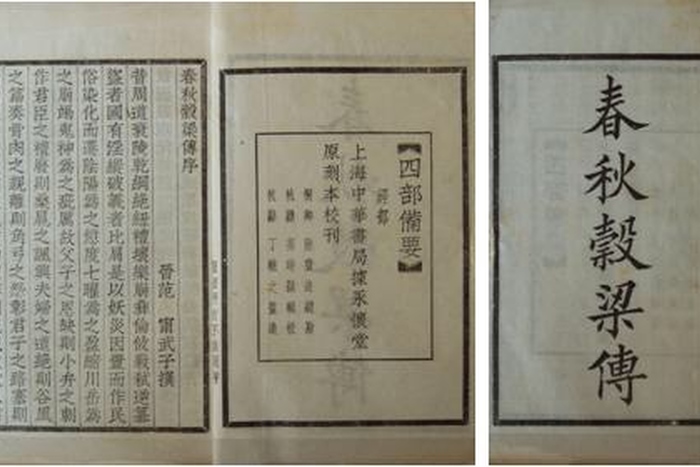 春秋穀梁傳
【四部備要】
經部
上海中華書局據永懷堂
原刻本校刊
桐鄉 陸費逵總勘
杭縣 高時顯輯校
杭縣 丁輔之監造
春秋穀梁傳序
晉范 甯武子撰
昔周道衰陵乾綱絕紐禮壞樂崩彝倫攸斁弒逆篡
盜者國有淫縱破義者比肩是以妖災因釁而作民
俗染化而遷陰陽為之愆度七曜為之盈縮川岳為
之崩竭鬼神為之疵厲故父子之恩缺則小弁之刺
作君臣之禮廢則桑扈之諷興夫婦之道絕則谷風
之篇奏骨肉之親離則角弓之怨彰君子之路塞則